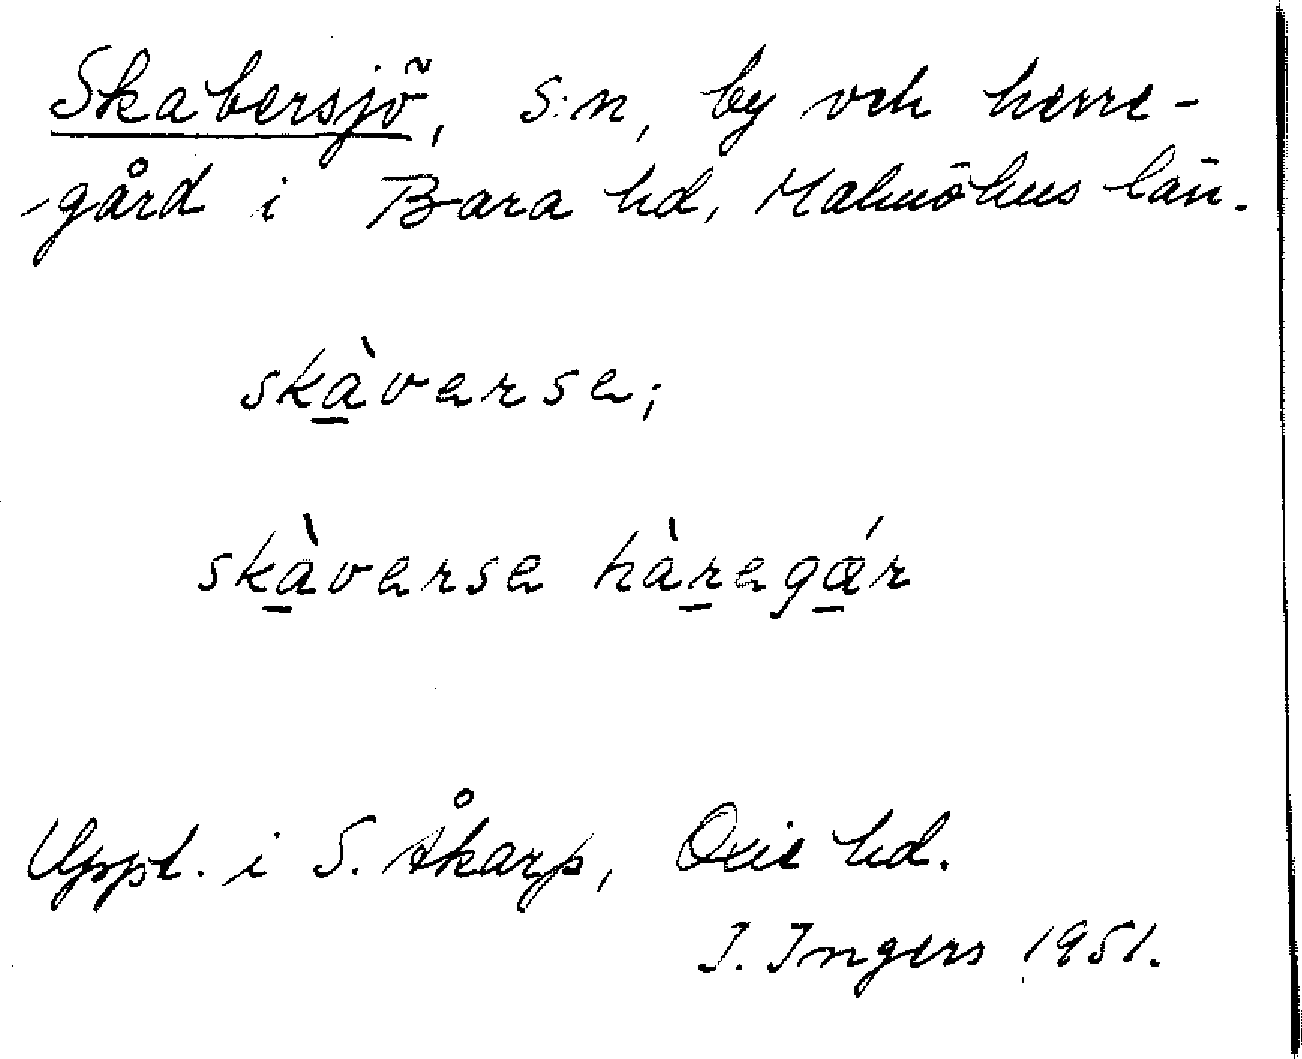 Skabersjö, s:n, by och herre-
gård i Bara hd, Malmöhus län.
skàverse;
skàverse hàregǽr
Uppt. i S. Åkarp, Oxie hd.
I. Ingers 1951.